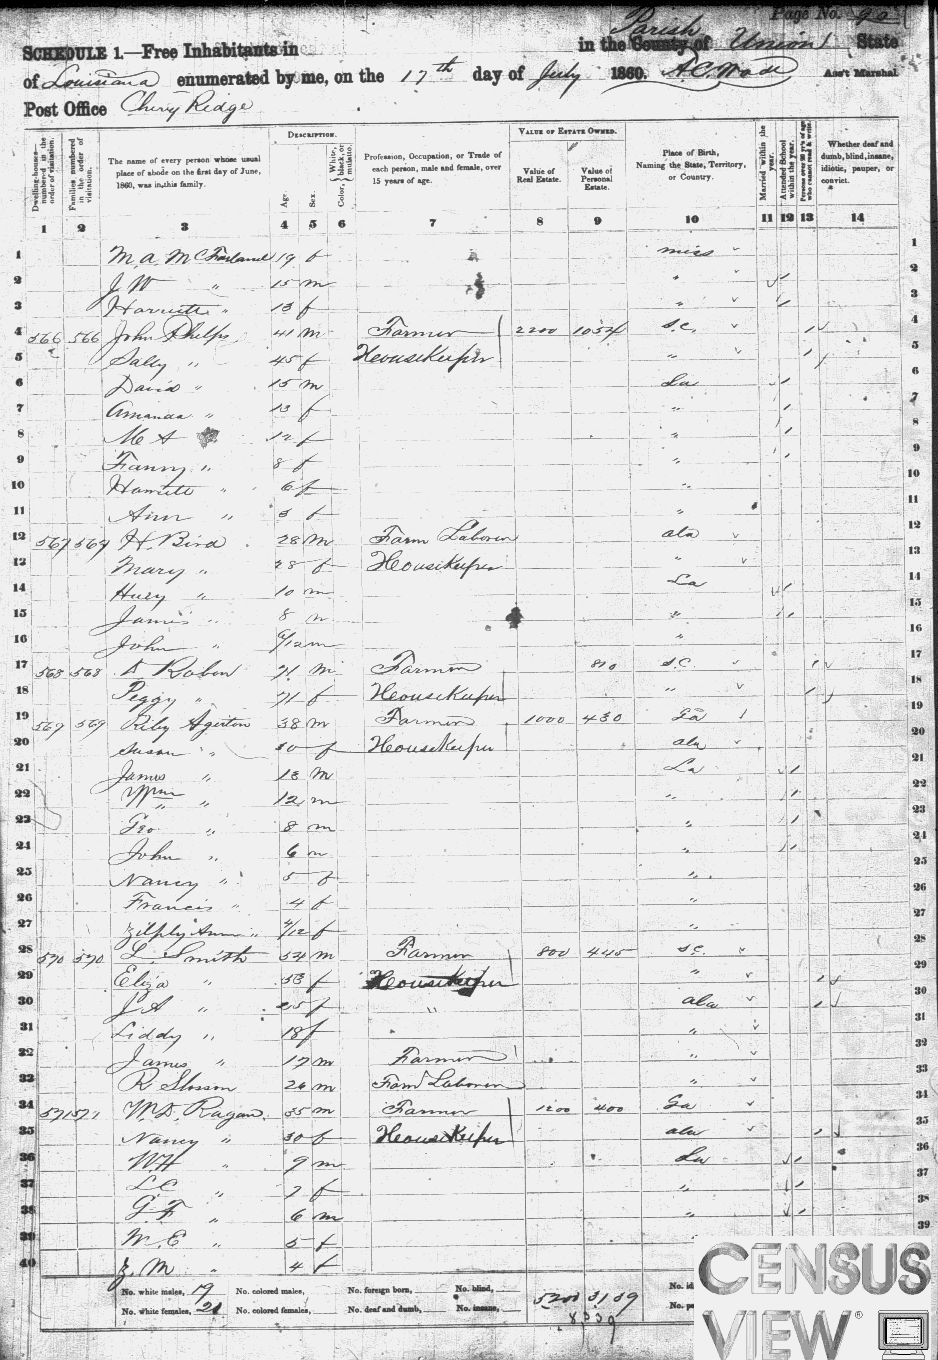 Page No. 90
SCHEDULE 1.—Free Inhabitants in in the County of Parish Union State
of Louisiana enumerated by me, on the 17th day of July 1860. A.C. Wade Ass't Marshal.
Post Office Cherry Ridge
Dwelling-houses—numbered in the order of visitation.
Families numbered in the order of visitation.
The name of every person whose usual place of abode on the first day of June, 1860, was in this family.
DESCRIPTION.
Age.
Sex.
Color, White, black, or mulatto.
Profession, Occupation, or Trade of each person, male and female, over 15 years of age.
VALUE OF ESTATE OWNED.
Value of Real Estate.
Value of Personal Estate.
Place of Birth, Naming the State, Territory, or Country.
Married within the year.
Attended School within the year.
Persons over 20 y'rs of age who cannot read & write.
Whether deaf and dumb, blind, insane, idiotic, pauper, or convict.
1 2 3 4 5 6 7 8 9 10 11 12 13 14
1 M. A. McFarland 19 f miss 1
2 J W " 15 m " 2
3 Harriette " 13 f " 3
4 566 566 John Phelps 41 m Farmer 2200 1054 S.C. 1 4
5 Sally " 45 f Housekeeper " 1 5
6 David " 15 m La 1 6
7 Amanda " 13 f " 1 7
8 M A 12 f " 1 8
9 Fanny " 8 f " 9
10 Harriette " 6 f " 10
11 Ann " 3 f " 11
12 567 567 H. Bird 28 m Farm Laborer ala 12
13 Mary " 28 f Housekeeper " 13
14 Hury " 10 m La 1 14
15 James " 8 m " 1 15
16 John " /12 m " 16
17 568 568 Rabun 71 m Farmer 810 S.C. 1 17
18 Peggy " 71 f Housekeeper " 1 18
19 569 569 Riby Agerton 38 m Farmer 1000 430 Ga 19
20 Susan " 30 f Housekeeper ala 20
21 James " 13 m La 1 21
22 Wm " 12 m " 1 22
23 Geo " 8 m " 1 23
24 John " 6 m " 1 24
25 Nancy " 5 f " 25
26 Francis " 4 f " 26
27 Zilphy Ann " 4/12 f " 27
28 570 570 L. Smith 54 m Farmer 800 445 S.C. 28
29 Eliza " 53 f Housekeeper " 1 29
30 J A " 25 f " ala 1 30
31 Liddy " 18 f " 31
32 James " 17 m Farmer " 32
33 R Slosson 26 m Farm Laborer " 33
34 571 571 W. D. Ragan 35 m Farmer 1200 400 Ga 34
35 Nancy " 30 f Housekeeper ala 1 35
36 W H " 9 m La 1 36
37 L C " 7 f " 1 37
38 G. F " 6 m " 1 38
39 M. E " 5 f 39
40 Z. M " 4 f
No. white males, 19 No. colored males, No. foreign born, No. blind,
No. white females, 21 No. colored females, No. deaf and dumb, No. insane,
5200 3139
8339
CENSUS
VIEW®